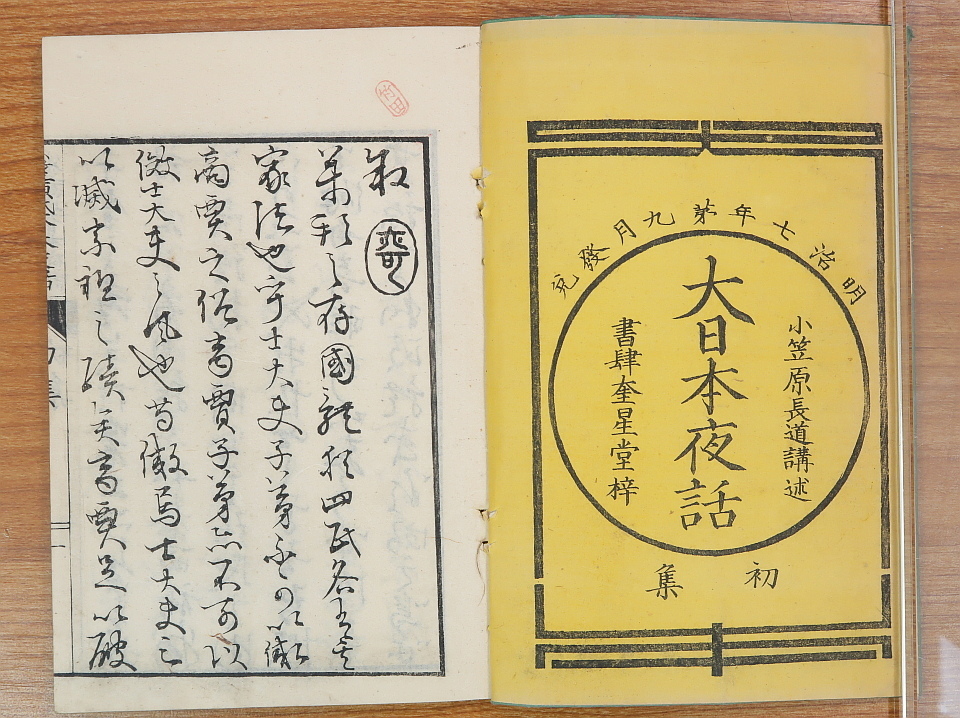 明治七年苐九月發兌
小笠原長道講述
大日本夜話
書肆奎星堂梓
初集
竹田
叙
之存國體 四民各有其
家法也 士大夫子弟不可以傚
商賈之俗商賈子弟亦不可以
傚士大夫之風也苟傚焉士大夫
以滅 祖之 矣商賈足以破